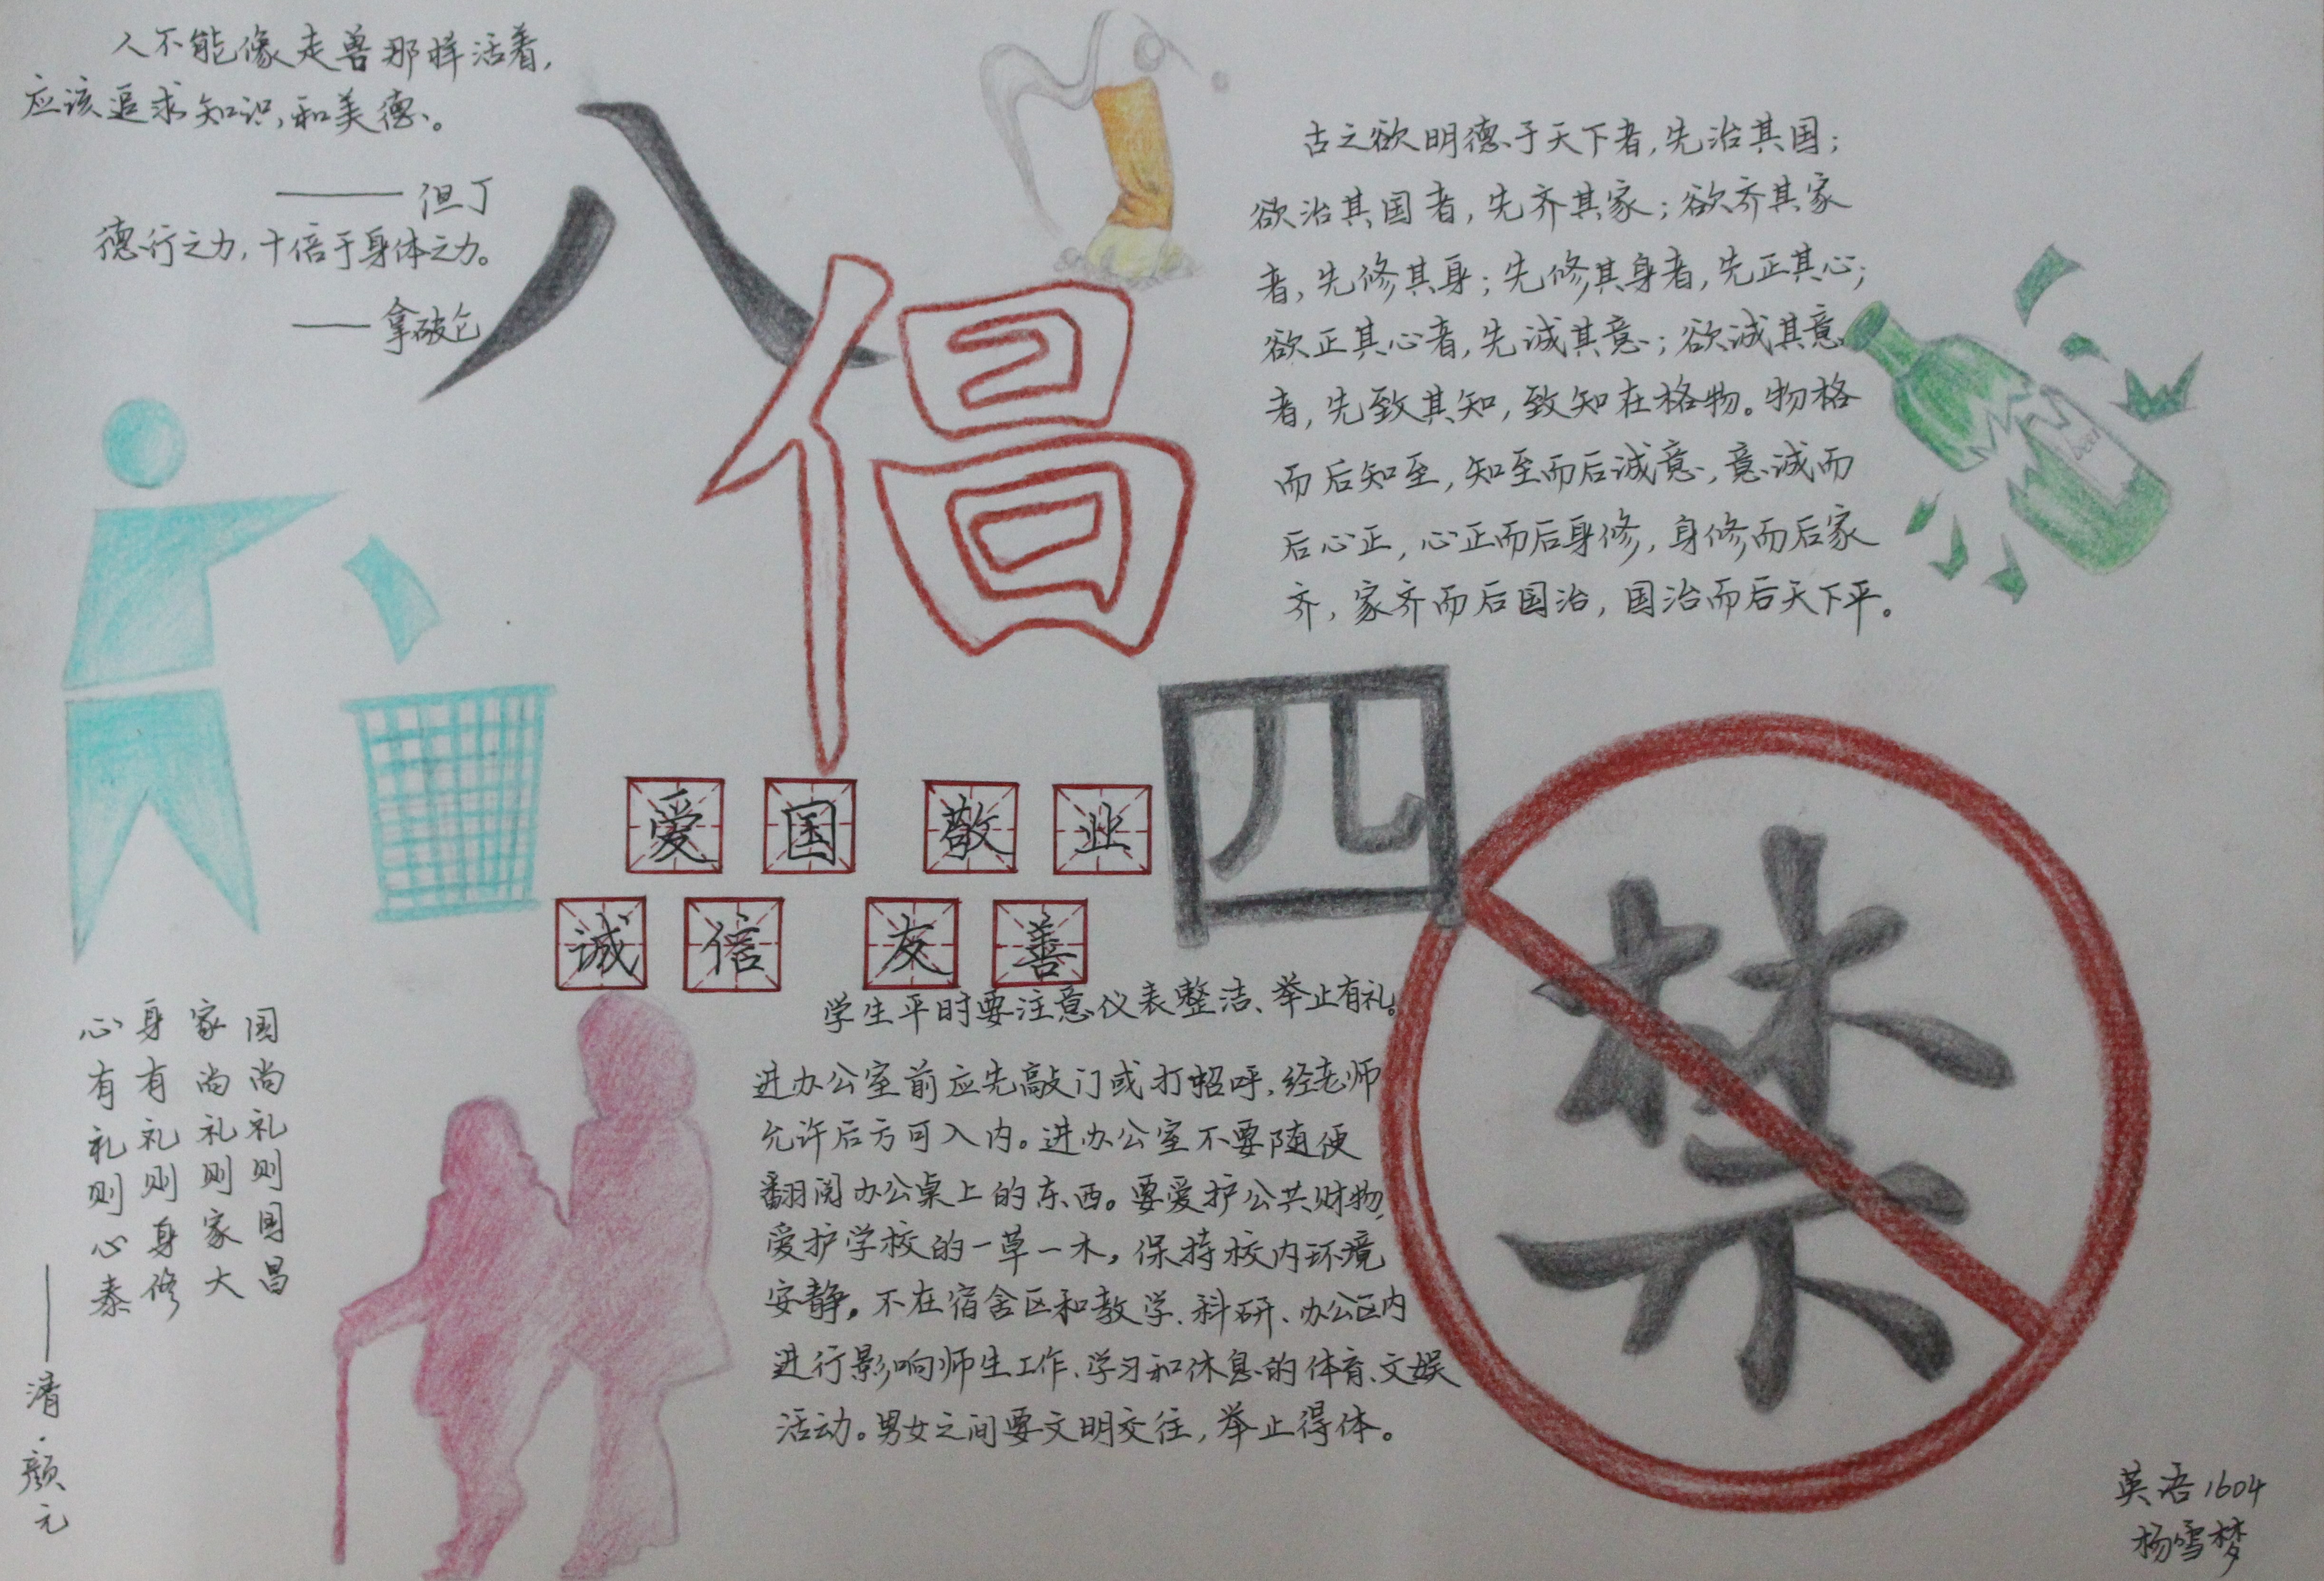 人不能像走兽那样活着，
应该追求知识和美德。
——但丁
德行之力，十倍于身体之力。
——拿破仑
八
倡
古之欲明德于天下者，先治其国；
欲治其国者，先齐其家；欲齐其家
者，先修其身；先修其身者，先正其心；
欲正其心者，先诚其意；欲诚其意
者，先致其知，致知在格物。物格
而后知至，知至而后诚意，意诚而
后心正，心正而后身修，身修而后家
齐，家齐而后国治，国治而后天下平。
beer
四
禁
爱国 敬业
诚信 友善
学生平时要注意仪表整洁、举止有礼。
进办公室前应先敲门或打招呼，经老师
允许后方可入内。进办公室不要随便
翻阅办公桌上的东西。要爱护公共财物，
爱护学校的一草一木，保持校内环境
安静。不在宿舍区和教学、科研、办公区内
进行影响师生工作、学习和休息的体育、文娱
活动。男女之间要文明交往，举止得体。
国尚礼则国昌
家尚礼则家大
身有礼则身修
心有礼则心泰
——清·颜元
英语1604
杨雪梦